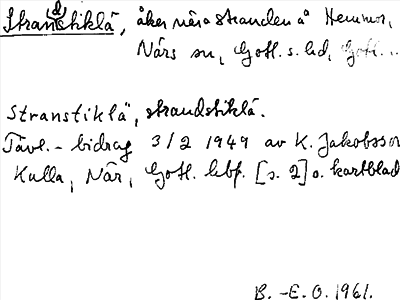 Stran(d)stiklå, åker nära stranden å Hemmor,
När sn, Gotl. s. hd, Gotl. ..
Stranstiklå, strandstiklå.
Tävl. - bidrag 3/2 1949 av K. Jakobsson
Kulla, När, Gotl. lbf. [s. 2] o. kartblad
B. -E. O. 1961.